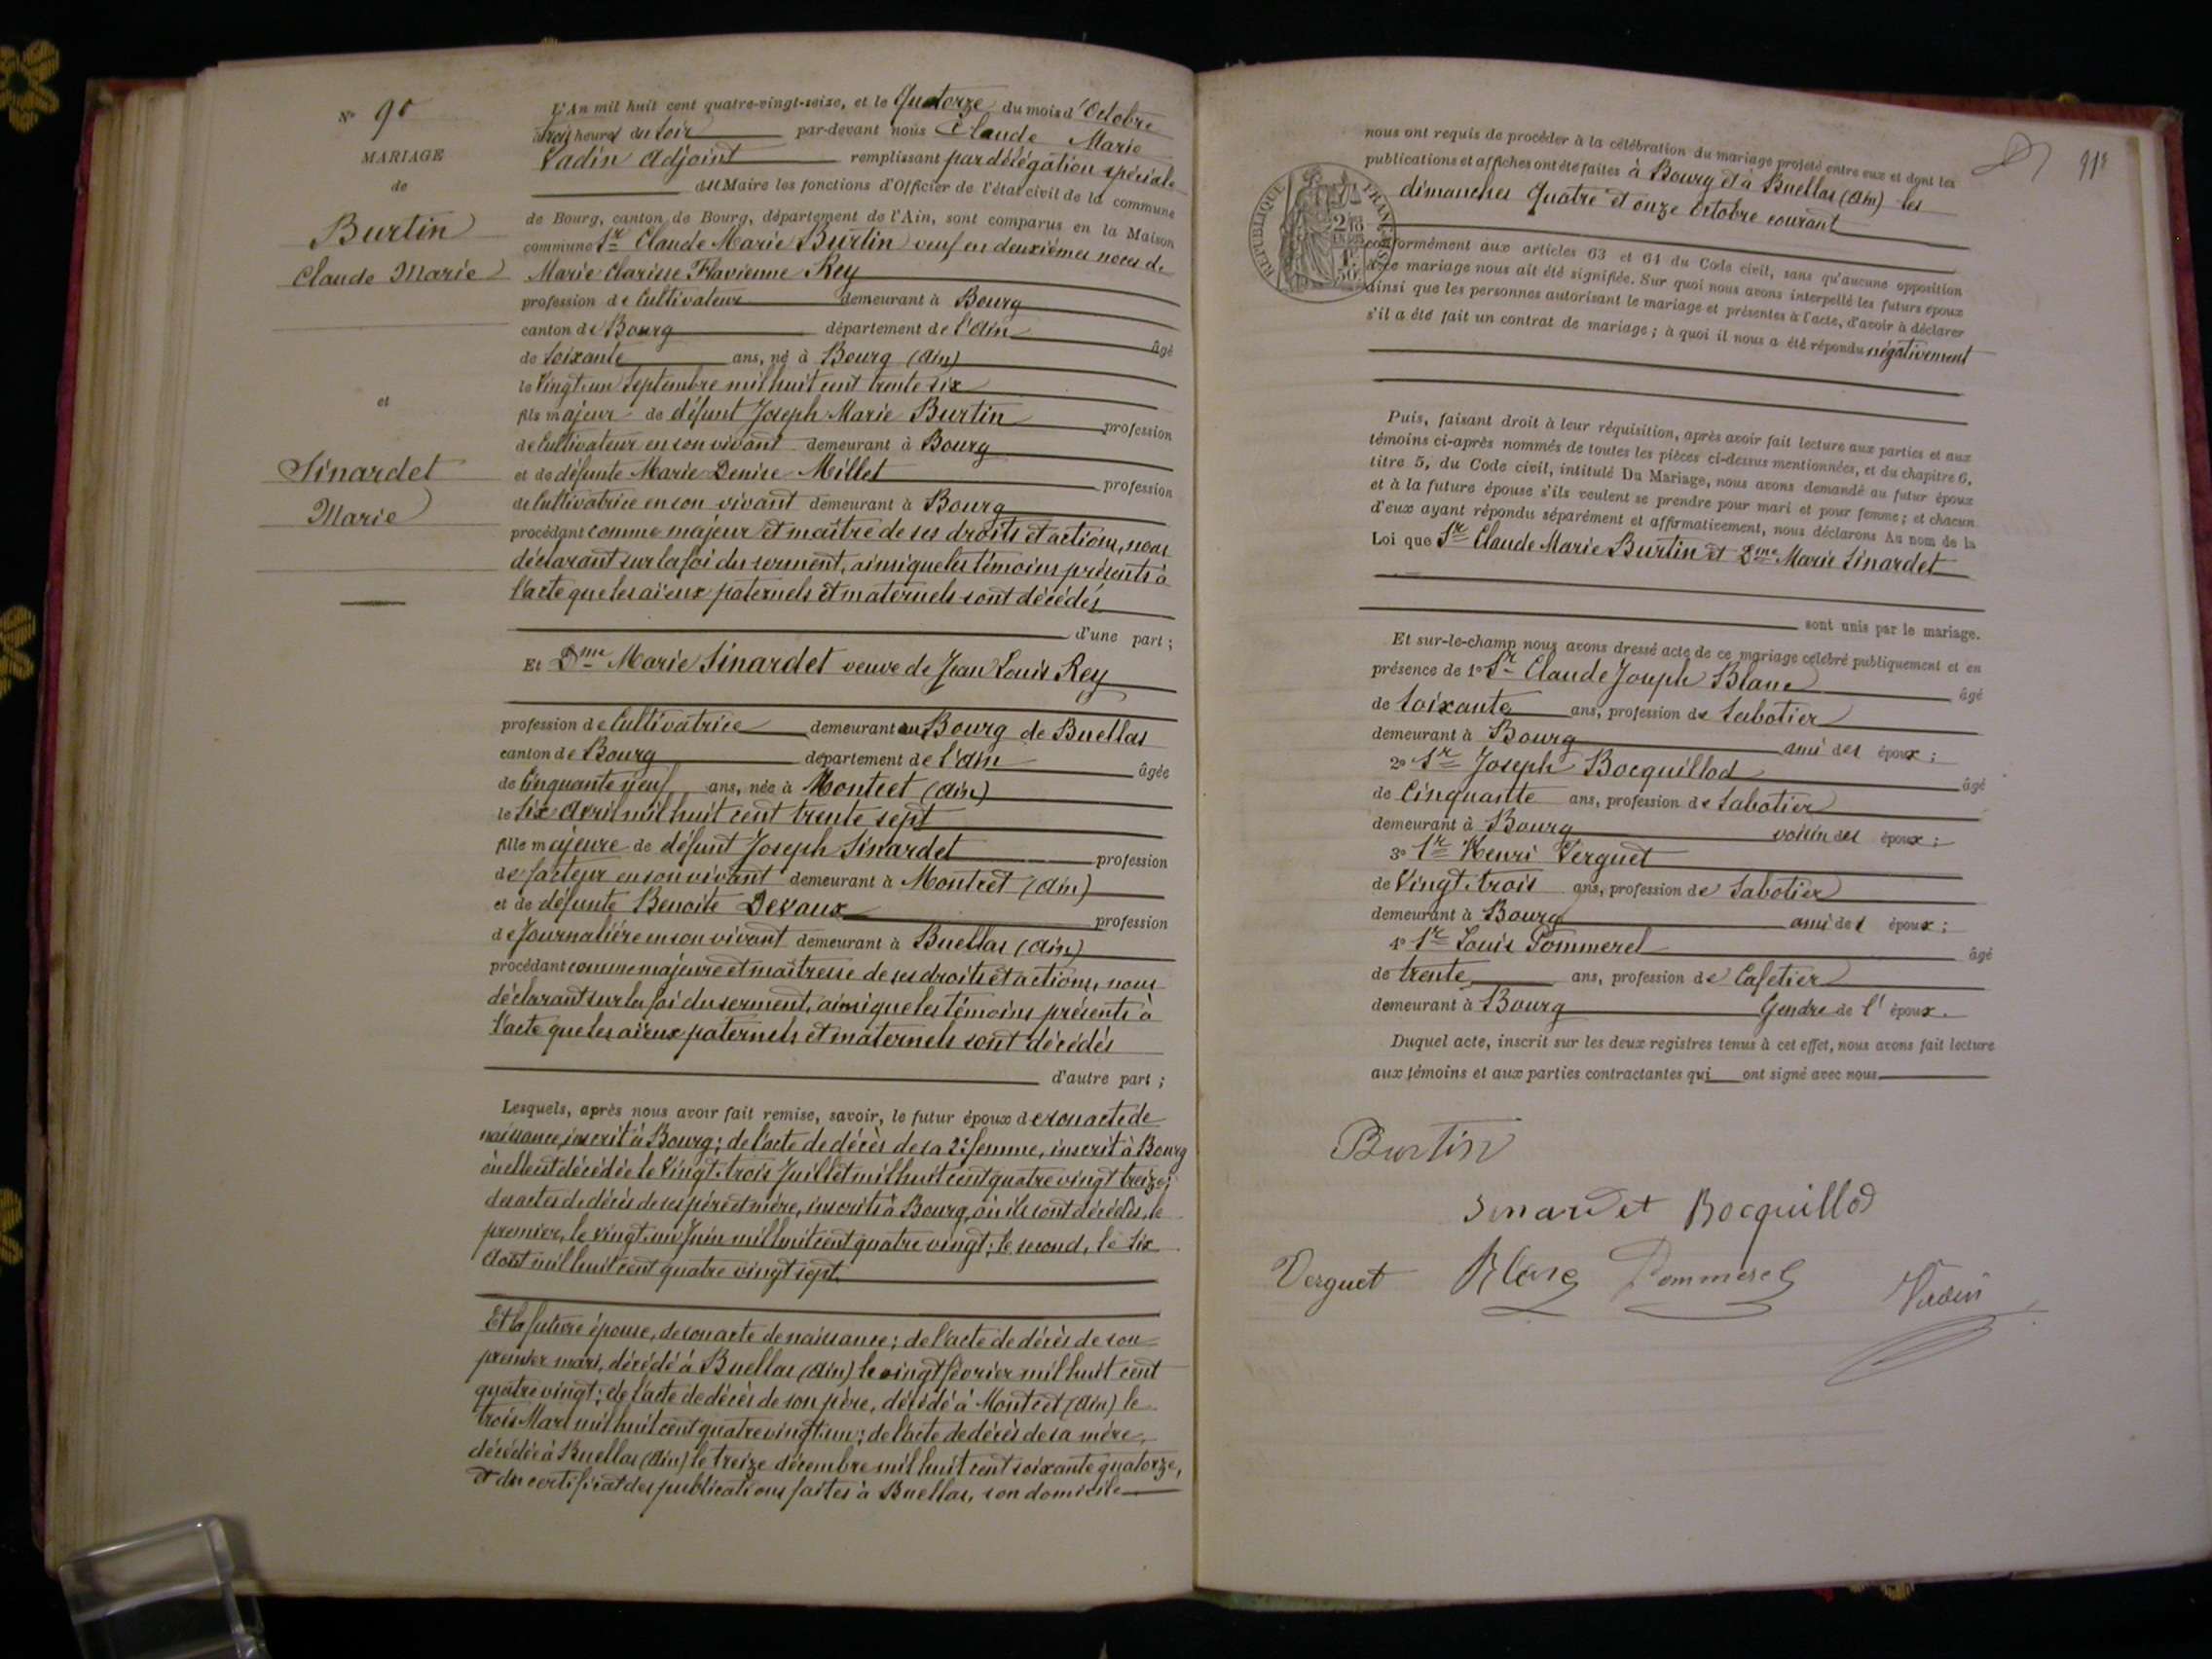 N° 90
MARIAGE
de
Burtin
Claude Marie
et
Sinardet
Marie
L'An mil huit cent quatre-vingt-seize, et le Quatorze du mois d'Octobre
à trois heures du soir par-devant nous Claude Marie
Vadin Adjoint remplissant par délégation spéciale
du Maire les fonctions d'Officier de l'état civil de la commune
de Bourg, canton de Bourg, département de l'Ain, sont comparus en la Maison
commune Sr Claude Marie Burtin veuf en deuxièmes noces de
Marie Clarisse Flavienne Rey
profession de Cultivateur demeurant à Bourg
canton de Bourg département de l'Ain âgé
de Soixante ans, né à Bourg (Ain)
le Vingt un Septembre mil huit cent trente six
fils majeur de défunt Joseph Marie Burtin profession
de Cultivateur en son vivant demeurant à Bourg
et de défunte Marie Denise Millet profession
de Cultivatrice en son vivant demeurant à Bourg
procédant comme majeur et maître de ses droits et actions, nous
déclarant sur la foi du serment, ainsi que les témoins présents à
l'acte que les aïeux paternels et maternels sont décédés
d'une part ;
Et Dme Marie Sinardet veuve de Jean Louis Rey
profession de Cultivatrice demeurant au Bourg de Buellas
canton de Bourg département de l'Ain âgée
de Cinquante neuf ans, née à Montcet (Ain)
le Six Avril mil huit cent trente sept
fille majeure de défunt Joseph Sinardet profession
de facteur en son vivant demeurant à Montcet (Ain)
et de défunte Benoite Devaux profession
de Journalière en son vivant demeurant à Buellas (Ain)
procédant comme majeure et maîtresse de ses droits et actions, nous
déclarant sur la foi du serment, ainsi que les témoins présents à
l'acte que les aïeux paternels et maternels sont décédés
d'autre part ;
Lesquels, après nous avoir fait remise, savoir, le futur époux de son acte de
naissance, inscrit à Bourg ; de l'acte de décès de sa 2e femme, inscrit à Bourg
où elle est décédée le Vingt-trois Juillet mil huit cent quatre vingt treize ;
des actes de décès de ses père et mère, inscrits à Bourg, où ils sont décédés, le
premier, le vingt-un Juin mil huit cent quatre vingt ; le second, le Six
Août mil huit cent quatre vingt sept.
Et la future épouse, de son acte de naissance ; de l'acte de décès de son
premier mari, décédé à Buellas (Ain) le vingt février mil huit cent
quatre vingt ; de l'acte de décès de son père, décédé à Montcet (Ain) le
trois Mars mil huit cent quatre vingt un ; de l'acte de décès de sa mère,
décédée à Buellas (Ain) le treize décembre mil huit cent soixante quatorze,
et du certificat des publications faites à Buellas, son domicile
nous ont requis de procéder à la célébration du mariage projeté entre eux et dont les
publications et affiches ont été faites à Bourg et à Buellas (Ain) les
dimanches Quatre et onze Octobre courant
RÉPUBLIQUE FRANÇAISE
conformément aux articles 63 et 64 du Code civil, sans qu'aucune opposition
à ce mariage nous ait été signifiée. Sur quoi nous avons interpellé les futurs époux
ainsi que les personnes autorisant le mariage et présentes à l'acte, d'avoir à déclarer
s'il a été fait un contrat de mariage ; à quoi il nous a été répondu négativement
Puis, faisant droit à leur réquisition, après avoir fait lecture aux parties et aux
témoins ci-après nommés de toutes les pièces ci-dessus mentionnées, et du chapitre 6,
titre 5, du Code civil, intitulé Du Mariage, nous avons demandé au futur époux
et à la future épouse s'ils veulent se prendre pour mari et pour femme ; et chacun
d'eux ayant répondu séparément et affirmativement, nous déclarons Au nom de la
Loi que Sr Claude Marie Burtin et Dme Marie Sinardet
sont unis par le mariage.
Et sur-le-champ nous avons dressé acte de ce mariage célébré publiquement et en
présence de 1° Sr Claude Joseph Blanc âgé
de Soixante ans, profession de Sabotier
demeurant à Bourg ami des époux ;
2° Sr Joseph Bocquillod âgé
de Cinquante ans, profession de Sabotier
demeurant à Bourg voisin des époux ;
3° Sr Henri Verguet
de Vingt-trois ans, profession de Sabotier
demeurant à Bourg ami des époux ;
4° Sr Louis Pommerel âgé
de trente ans, profession de Cafetier
demeurant à Bourg Gendre de l'époux.
Duquel acte, inscrit sur les deux registres tenus à cet effet, nous avons fait lecture
aux témoins et aux parties contractantes qui ont signé avec nous
Burtin
Sinardet Bocquillod
Verguet Blanc Pommerel Vadin